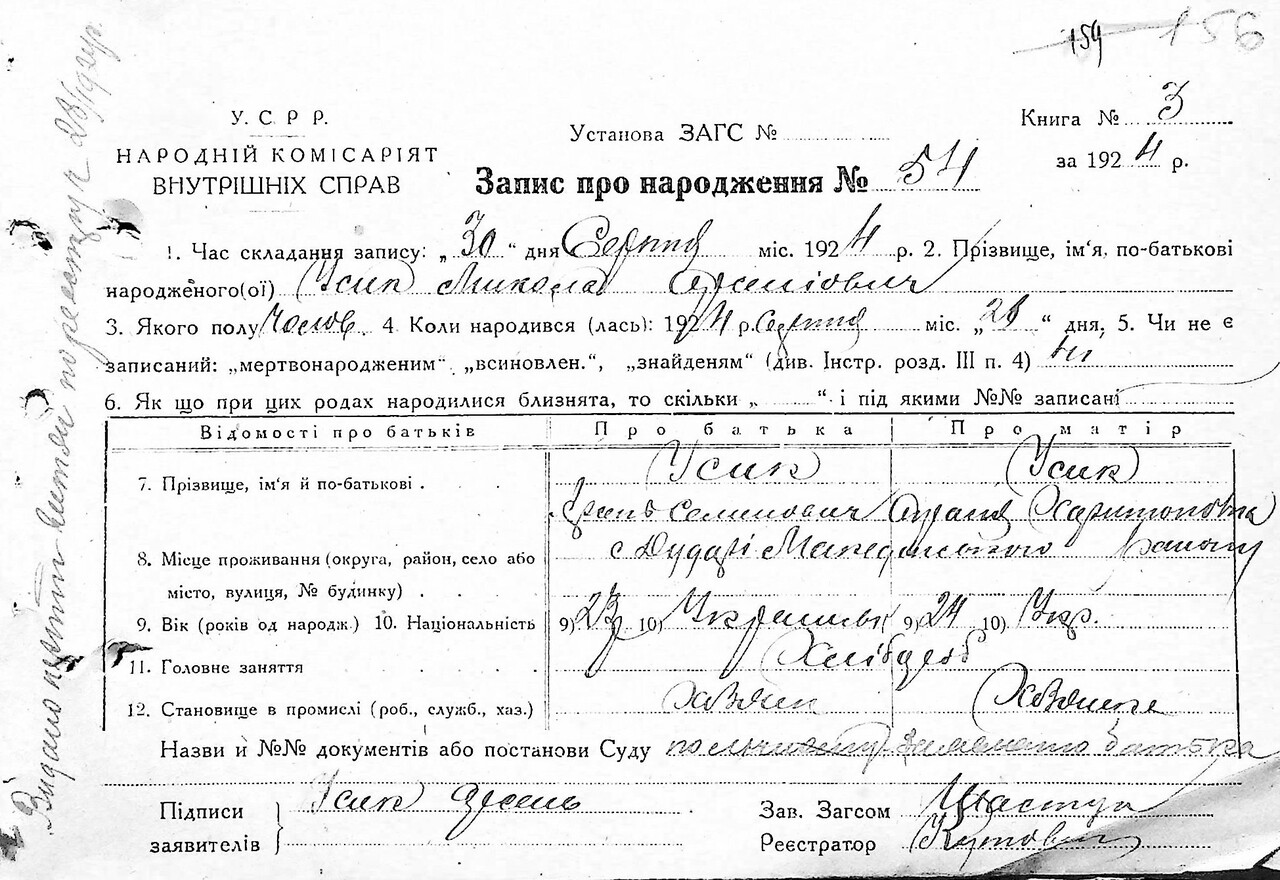 159 156
У. С. Р. Р.
НАРОДНІЙ КОМІСАРІЯТ
ВНУТРІШНІХ СПРАВ
Установа ЗАГС №
Книга № 3
за 1924 р.
Запис про народження № 54
1. Час складання запису: „30“ дня Серпня міс. 1924 р. 2. Прізвище, ім'я, по-батькові
народженого(ої) Усик Микола Арсенович
3. Якого полу чолов. 4 Коли народився (лась): 1924 р. Серпня міс. „28“ дня, 5. Чи не є
записаний: „мертвонародженим“ „всиновлен.“, „знайденям“ (див. Інстр. розд. III п. 4) ні
6. Як що при цих родах народилися близнята, то скільки „ “ і під якими №№ записані
Відомості про батьків Про батька Про матір
7. Прізвище, ім'я й по-батькові Усик Усик
Арсень Семенович Харитоновна
8. Місце проживання (округа, район, село або с Дударі Македонського району
місто, вулиця, № будинку)
9. Вік (років од народж.) 10. Національність 9) 23 10) Українськ 9) 24 10) Укр.
11. Головне заняття Хлібороб
12. Становище в промислі (роб., служб., хаз.) Хазяїн Хазяйка
Назви й №№ документів або постанови Суду батька
Підписи
заявителів
Усик Арсень
Зав. Загсом
Реєстратор
Видано витяг